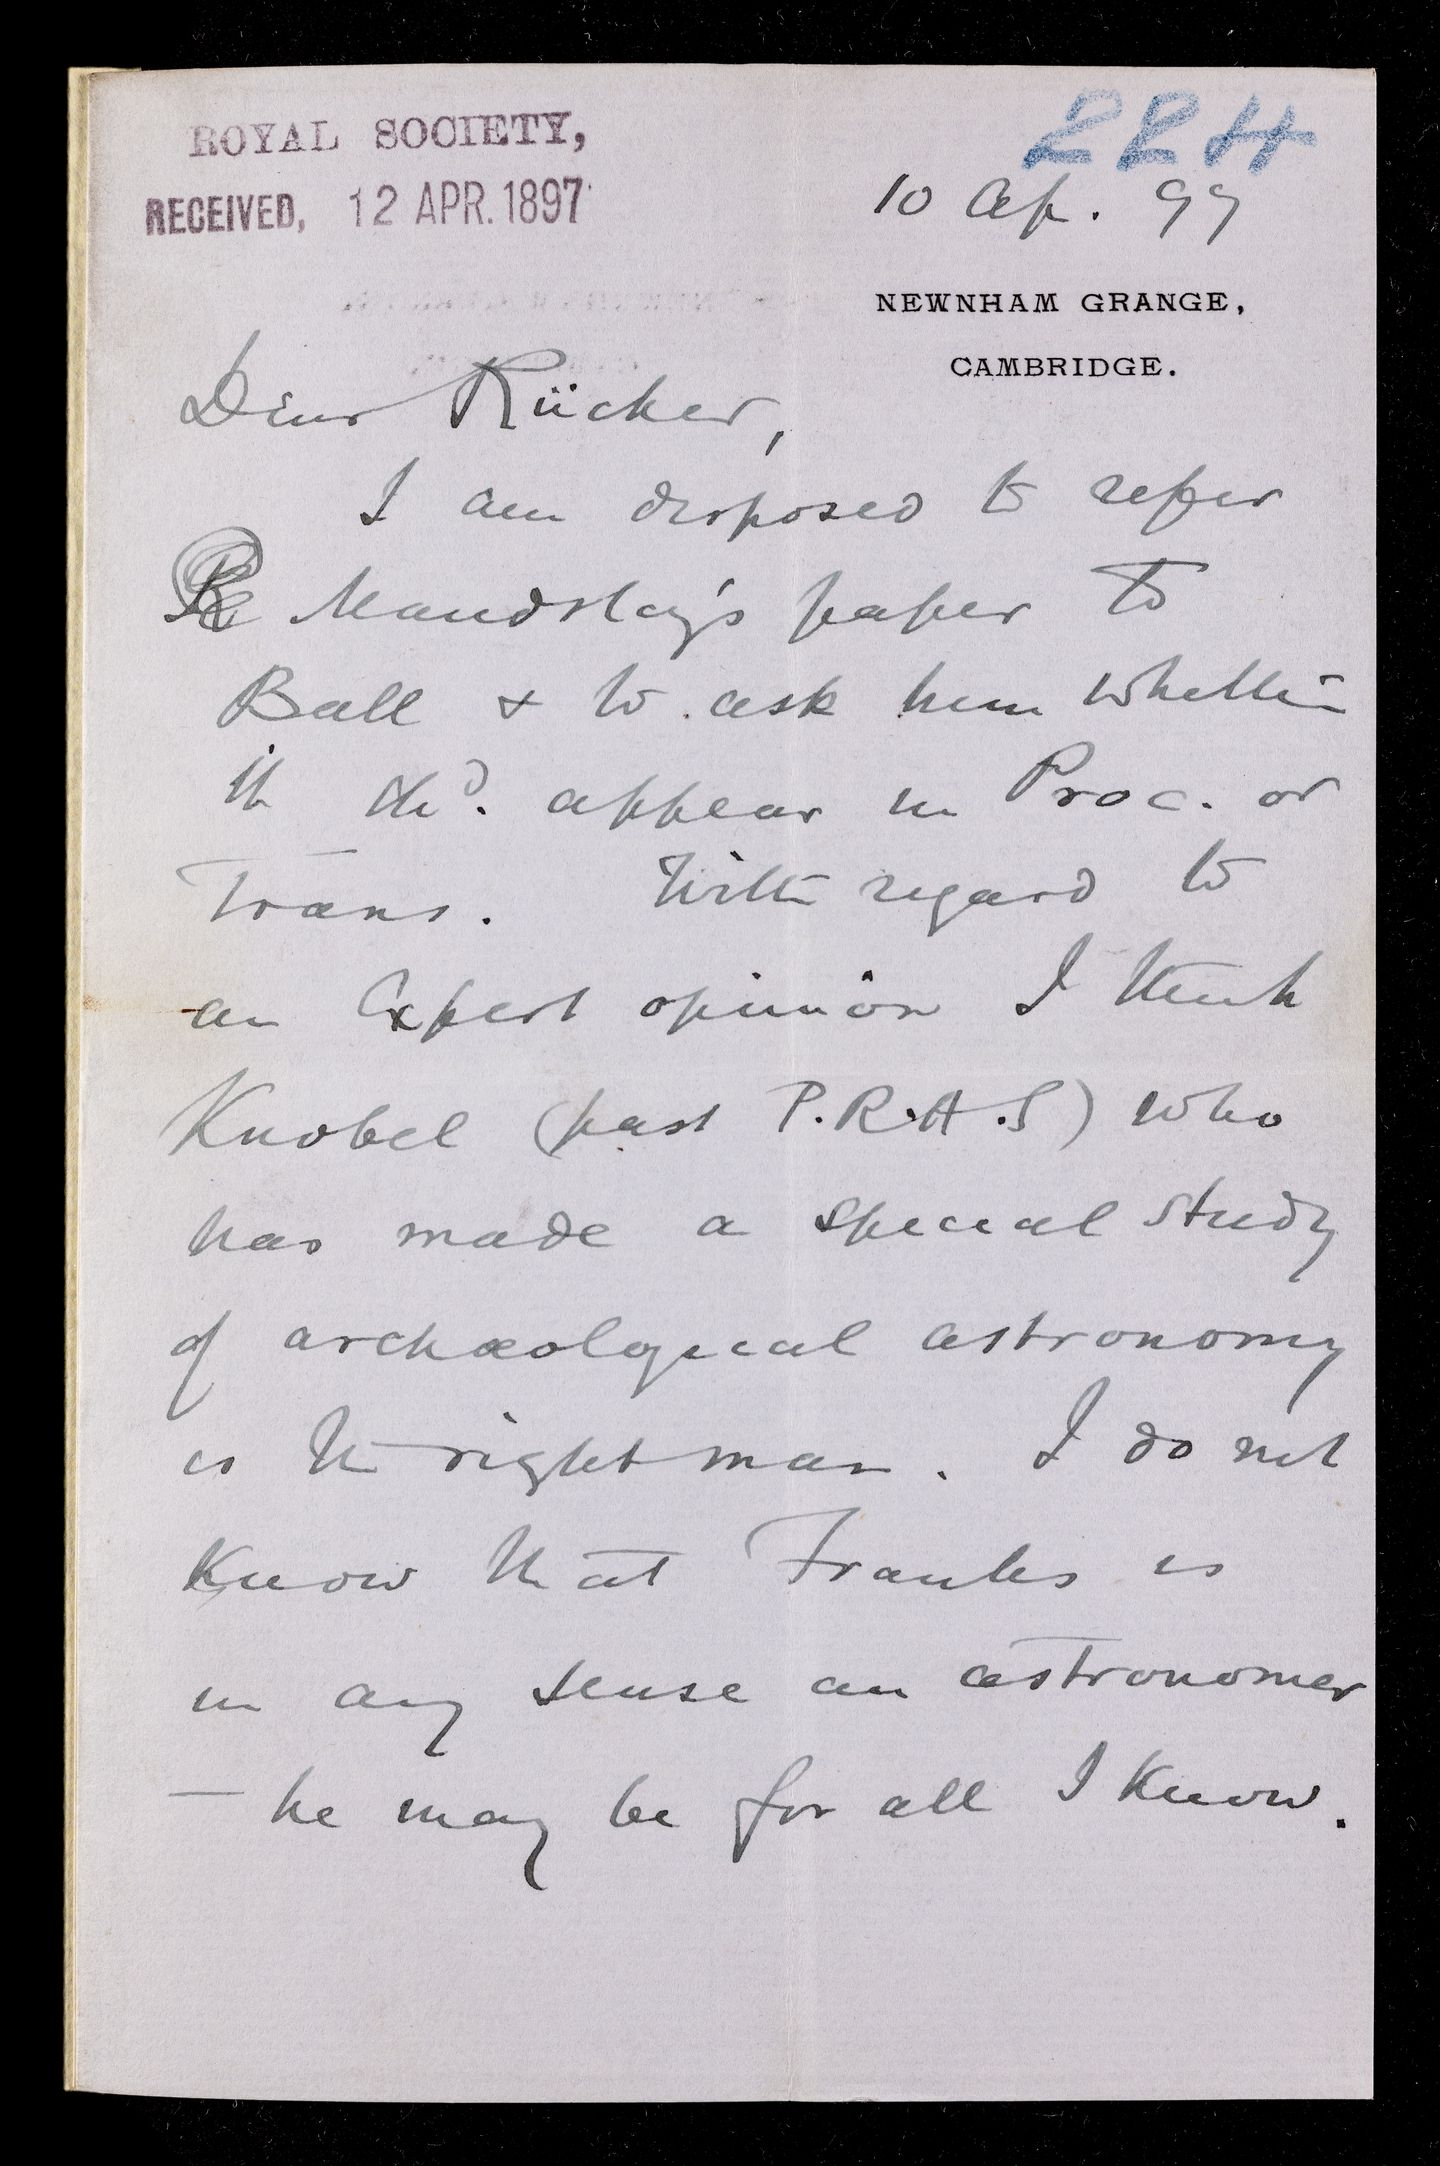 ROYAL SOCIETY,
RECEIVED, 12 APR. 1897
224
10 Ap. 97
NEWNHAM GRANGE,
CAMBRIDGE.
Dear Rücker,
I am disposed to refer
Maudslay's paper to
Ball & to ask him whether
it shd. appear in Proc. or
Trans. With regard to
an Expert opinion I think
Knobel (past P.R.A.S) who
has made a special study
of archæological astronomy
is the right man. I do not
know that Franks is
in any sense an astronomer
— he may be for all I know.